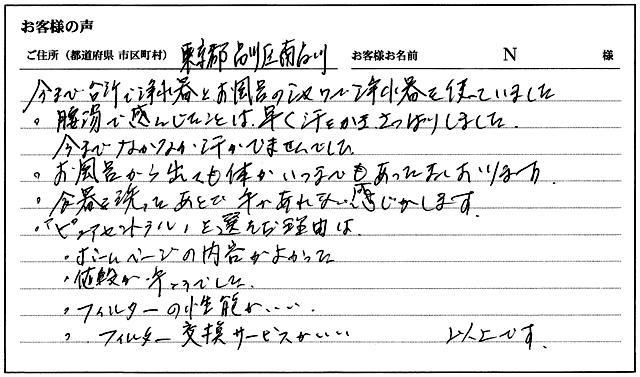 お客様の声
ご住所（都道府県 市区町村） 東京都品川区南品川 お客様お名前 N 様
今まで台所で浄水器とお風呂のシャワで浄水器を使っていました
・腰湯で感んじたことは、早く汗をかきさっぱりしました。
今までなかなか汗がでませんでした
・お風呂から出ても体がいつまでもあったましおります。
・食器を洗ったあとで手があれない感じがします。
・「ピュアセントラル」を選んだ理由は、
・ホームページの内容がよかった
・値段が手ごろでした。
・フィルターの性能がいい。
・フィルター交換サービスがいい 以上です。